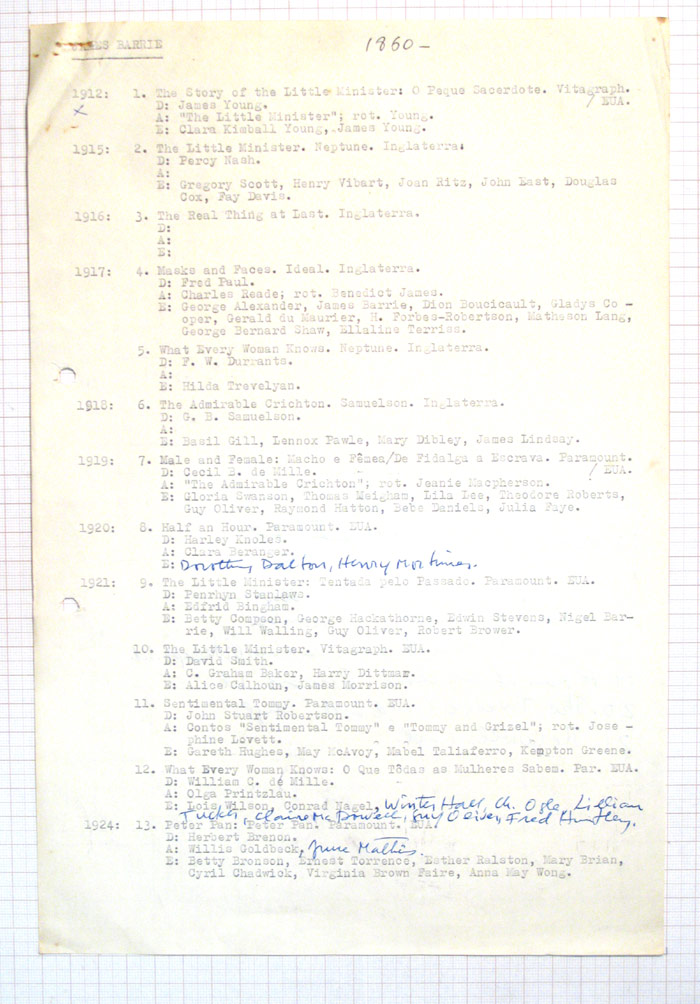 JAMES BARRIE 1860-
1912: 1. The Story of the Little Minister: O Peque Sacerdote. Vitagraph.
/ EUA.
x D: James Young.
A: "The Little Minister"; rot. Young.
E: Clara Kimball Young, James Young.
1915: 2. The Little Minister. Neptune. Inglaterra:
D: Percy Nash.
A:
E: Gregory Scott, Henry Vibart, Joan Ritz, John East, Douglas
Cox, Fay Davis.
1916: 3. The Real Thing at Last. Inglaterra.
D:
A:
E:
1917: 4. Masks and Faces. Ideal. Inglaterra.
D: Fred Paul.
A: Charles Reade; rot. Benedict James.
E: George Alexander, James Barrie, Dion Boucicault, Gladys Co -
oper, Gerald du Maurier, H. Forbes-Robertson, Matheson Lang,
George Bernard Shaw, Ellaline Terriss.
5. What Every Woman Knows. Neptune. Inglaterra.
D: F. W. Durrants.
A:
E: Hilda Trevelyan.
1918: 6. The Admirable Crichton. Samuelson. Inglaterra.
D: G. B. Samuelson.
A:
E: Basil Gill, Lennox Pawle, Mary Dibley, James Lindsay.
1919: 7. Male and Female: Macho e Fêmea/De Fidalga a Escrava. Paramount.
/ EUA.
D: Cecil B. de Mille.
A: "The Admirable Crichton"; rot. Jeanie Macpherson.
E: Gloria Swanson, Thomas Meigham, Lila Lee, Theodore Roberts,
Guy Oliver, Raymond Hatton, Bebe Daniels, Julia Faye.
1920: 8. Half an Hour. Paramount. EUA.
D: Harley Knoles.
A: Clara Beranger.
E: Dorothy Dalton, Henry Mortimer.
1921: 9. The Little Minister: Tentada pelo Passado. Paramount. EUA.
D: Penrhyn Stanlaws.
A: Edfrid Bingham.
E: Betty Compson, George Hackathorne, Edwin Stevens, Nigel Bar-
rie, Will Walling, Guy Oliver, Robert Brower.
10. The Little Minister. Vitagraph. EUA.
D: David Smith.
A: C. Graham Baker, Harry Dittmar.
E: Alice Calhoun, James Morrison.
11. Sentimental Tommy. Paramount. EUA.
D: John Stuart Robertson.
A: Contos "Sentimental Tommy" e "Tommy and Grizel"; rot. Jose -
phine Lovett.
E: Gareth Hughes, May McAvoy, Mabel Taliaferro, Kempton Greene.
12. What Every Woman Knows: O Que Tôdas as Mulheres Sabem. Par. EUA.
D: William C. de Mille.
A: Olga Printzlau.
E: Lois Wilson, Conrad Nagel, Winter Hall, Ch. Ogle, Lillian
Tucker, Claire McDowell, Guy Oliver, Fred Huntley.
1924: 13. Peter Pan: Peter Pan. Paramount. EUA.
D: Herbert Brenon.
A: Willis Goldbeck, June Mathis.
E: Betty Bronson, Ernest Torrence, Esther Ralston, Mary Brian,
Cyril Chadwick, Virginia Brown Faire, Anna May Wong.